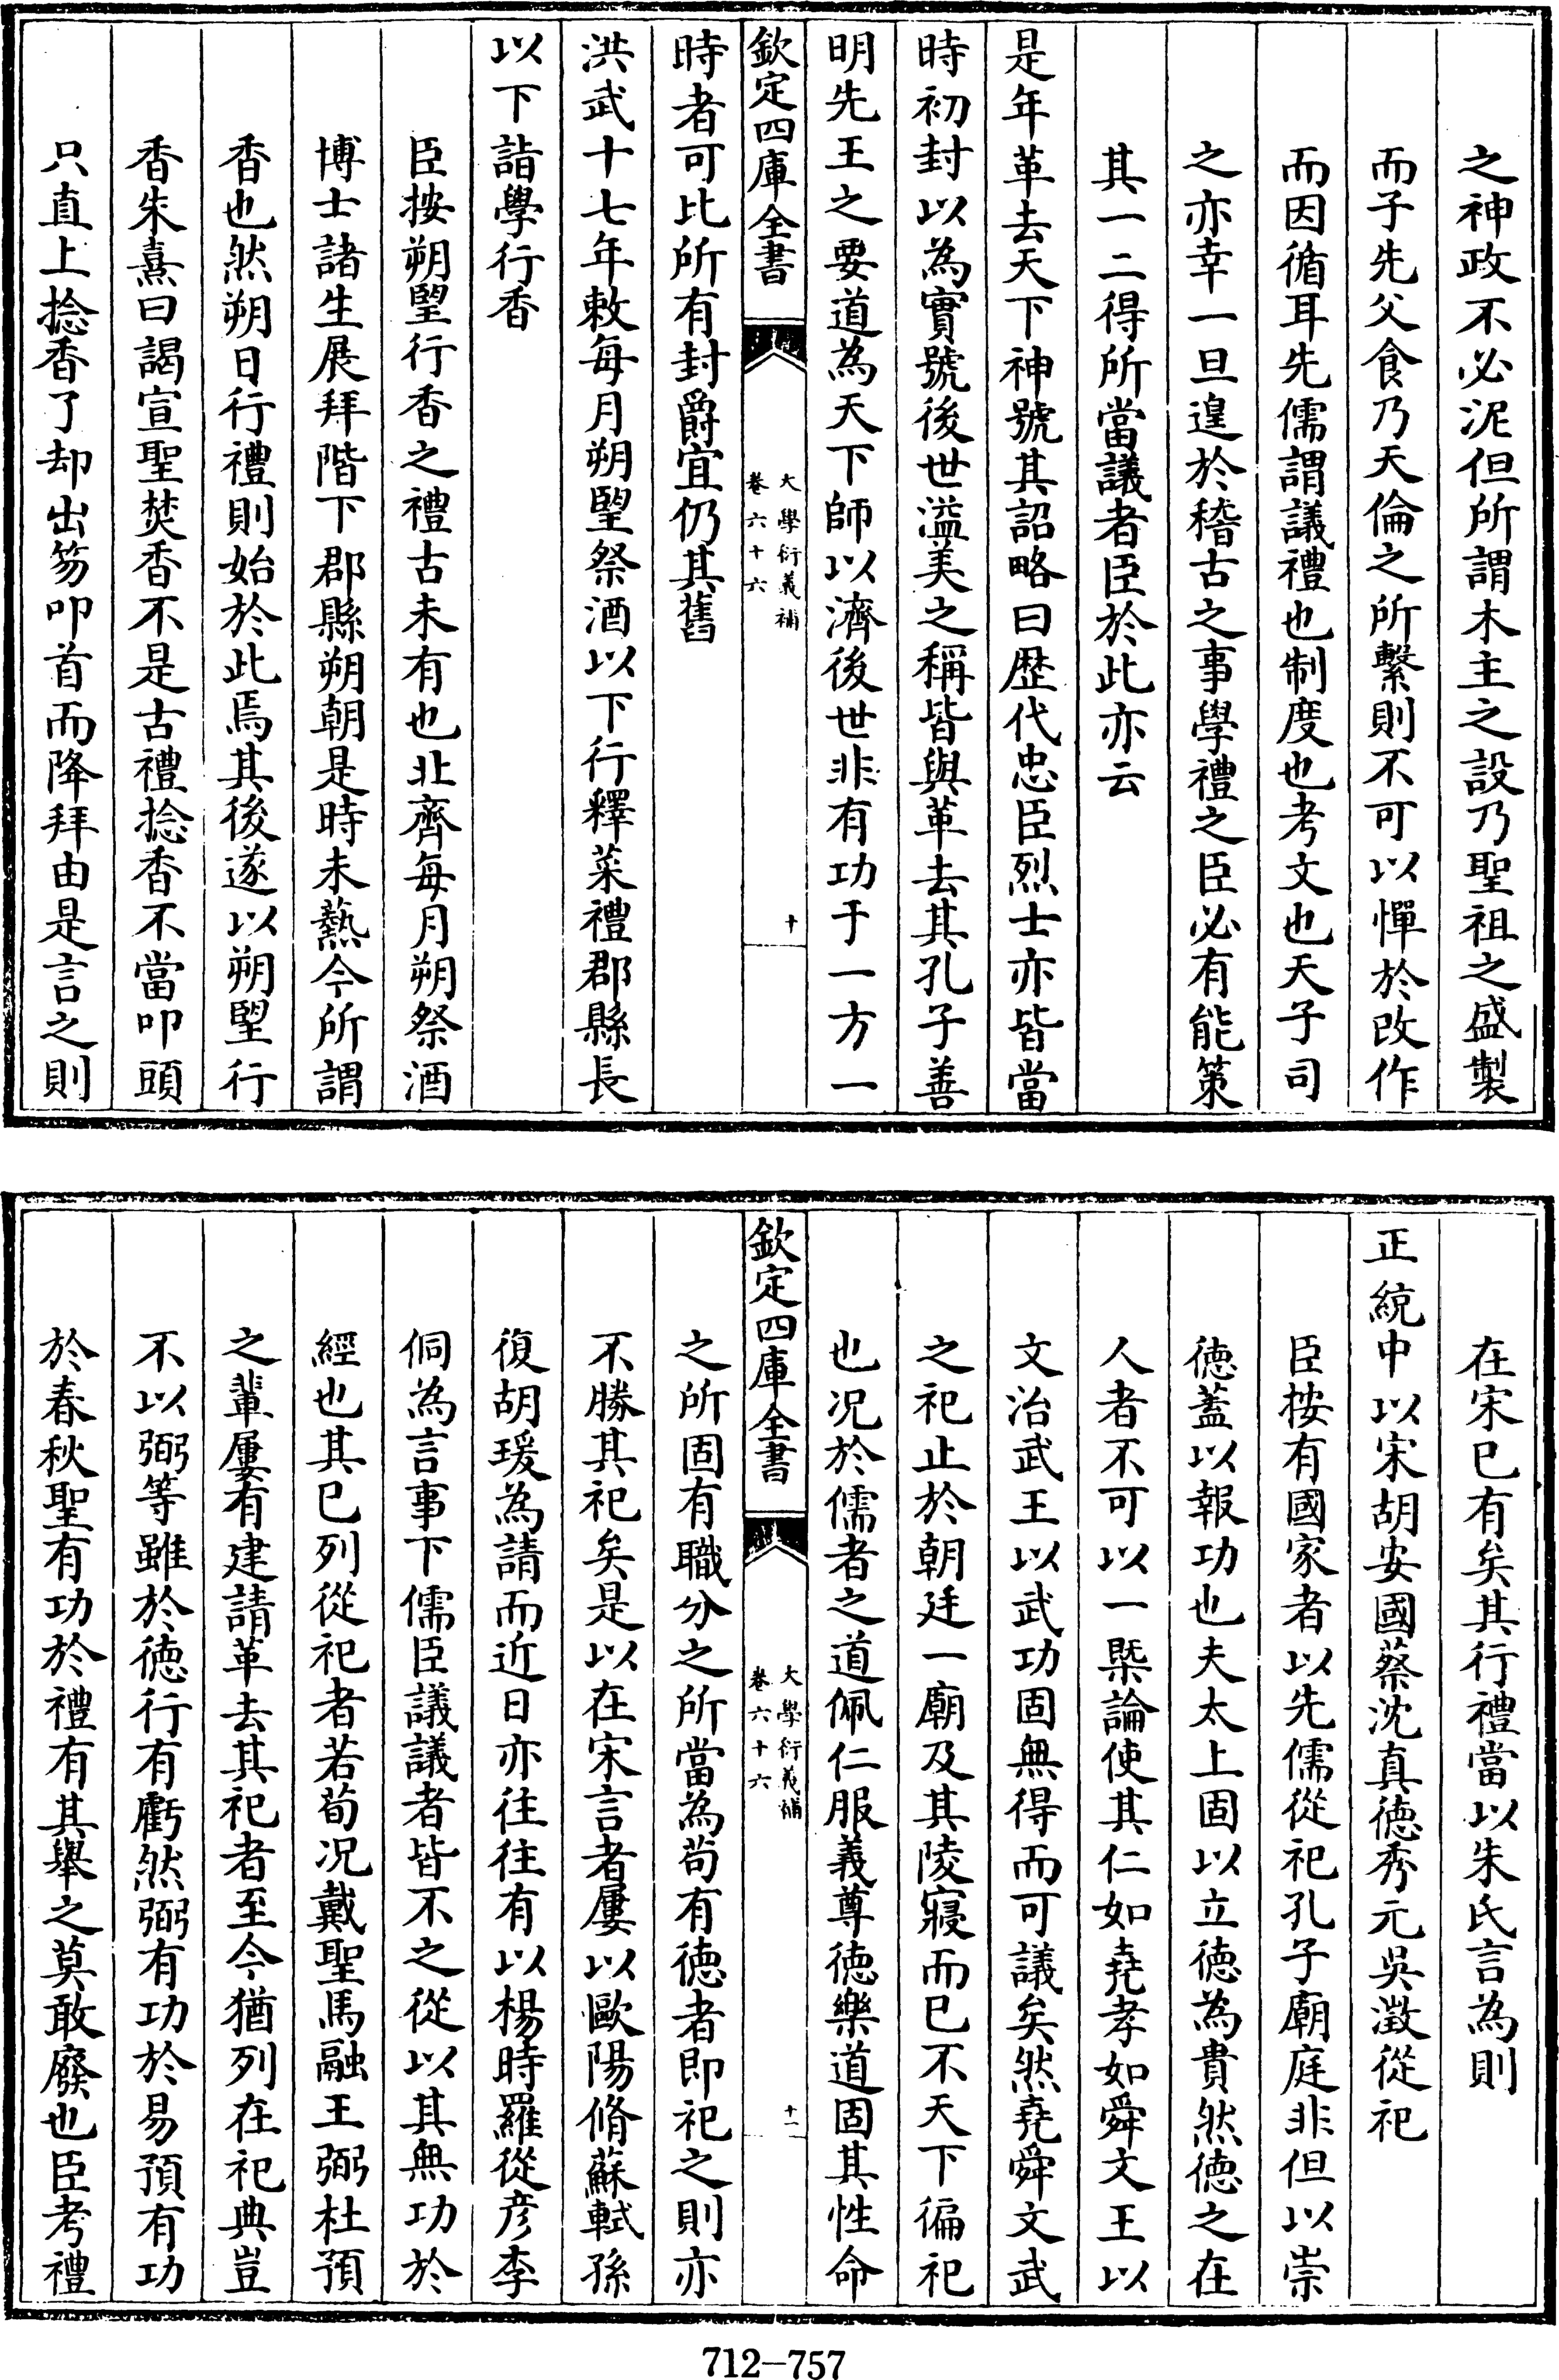 之神政不必泥但所謂木主之設乃聖祖之盛製
而子先父食乃天倫之所繫則不可以憚於改作
而因循耳先儒謂議禮也制度也考文也天子司
之亦幸一旦遑於稽古之事學禮之臣必有能策
其一二得所當議者臣於此亦云
是年革去天下神號其詔略曰歴代忠臣烈士亦皆當
時初封以為實號後世溢美之稱皆與革去其孔子善
明先王之要道為天下師以濟後世非有功于一方一
欽定四庫全書
大學衍義補
卷六十六
十
時者可比所有封爵宜仍其舊
洪武十七年敕每月朔朢祭酒以下行釋菜禮郡縣長
以下詣學行香
臣按朔朢行香之禮古未有也北齊每月朔祭酒
博士諸生展拜階下郡縣朔朝是時未爇今所謂
香也然朔日行禮則始於此焉其後遂以朔朢行
香朱熹曰謁宣聖焚香不是古禮捻香不當叩頭
只直上捻香了却出笏叩首而降拜由是言之則
在宋已有矣其行禮當以朱氏言為則
正統中以宋胡安國蔡沈真徳秀元吳澂從祀
臣按有國家者以先儒從祀孔子廟庭非但以崇
徳蓋以報功也夫太上固以立徳為貴然徳之在
人者不可以一槩論使其仁如堯孝如舜文王以
文治武王以武功固無得而可議矣然堯舜文武
之祀止於朝廷一廟及其陵寢而已不天下徧祀
也况於儒者之道佩仁服義尊徳樂道固其性命
欽定四庫全書
大學衍義補
卷六十六
十一
之所固有職分之所當為苟有徳者即祀之則亦
不勝其祀矣是以在宋言者屢以歐陽脩蘇軾孫
復胡瑗為請而近日亦往往有以楊時羅從彦李
侗為言事下儒臣議議者皆不之從以其無功於
經也其已列從祀者若荀况戴聖馬融王弼杜預
之輩屢有建請革去其祀者至今猶列在祀典豈
不以弼等雖於徳行有虧然弼有功於易預有功
於春秋聖有功於禮有其舉之莫敢廢也臣考禮
712-757